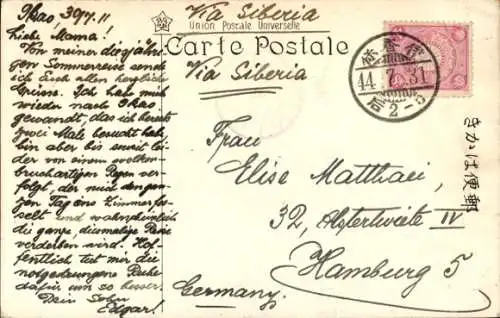 Ikao, 30/7.11
Liebe Mama!
Von meiner diesjähri-
gen Sommerreise sende
ich Euch allen herzliche
Grüsse. Ich habe mich
wieder nach Ikao
gewandt, das ich bereits
zwei Male besucht habe,
bin aber bis soweit leider
von einem wolken-
bruchartigen Regen ver-
folgt, der mich den gan-
zen Tag ans Zimmer fes-
selt und wahrscheinlich
die ganze, diesmalige Reise
verderben wird. Hof-
fentlich tut mir die
notgedrungene Ruhe
dafür um so besser.
Dein Sohn
Edgar!
Via Siberia
Union Postale Universelle
Carte Postale
Via Siberia
44.7.31
2-5
きかは便郵
Frau
Elise Matthaei,
32, Alstertwiete IV
Hamburg 5
Germany.